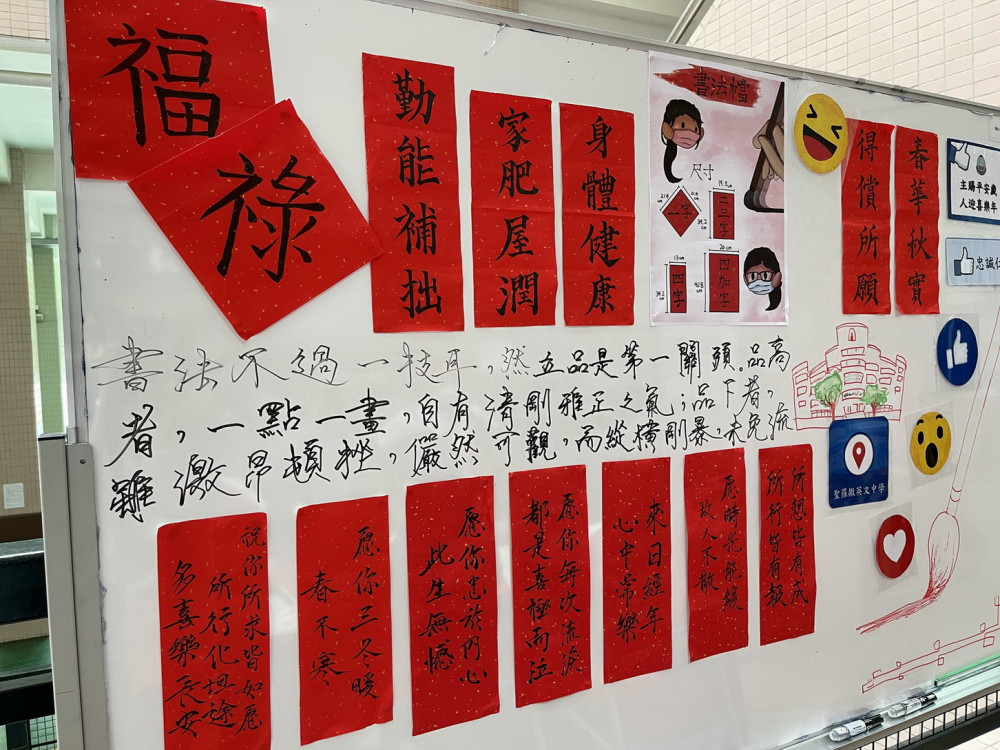 福
祿
勤能補拙
家肥屋潤
身體健康
書法檔
尺寸
一字
二三字
四字
四加字
得償所願
春華秋實
主賜平安歲
人迎喜樂年
忠誠仁
書法不過一技耳,然立品是第一關頭。品高
者,一點一畫,自有清剛雅正之氣;品下者,
雖激昂頓挫,儼然可觀,而縱橫剛暴,未免流
聖羅撒英文中學
祝你所求皆如愿
所行化坦途
多喜樂長安
愿你三冬暖
春不寒
愿你忠於內心
此生無憾
愿你每次流淚
都是喜極而泣
來日經年
心中常樂
愿時光能緩
故人不散
所想皆有成
所行皆有